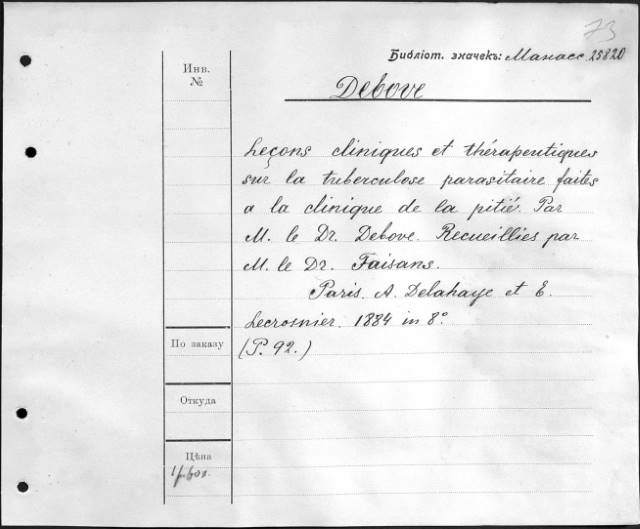 73
Библіот. значекъ: Манасс 25820
Инв.
№
Debove
Leçons cliniques et thérapeutiques
sur la tuberculose parasitaire faites
a la clinique de la pitié. Par
M. le Dr. Debove. Recueillies par
M. le Dr. Faisans.
Paris. A. Delahaye et E.
Lecrosnier. 1884 in 8°.
(P. 92.)
По заказу
Откуда
Цѣна